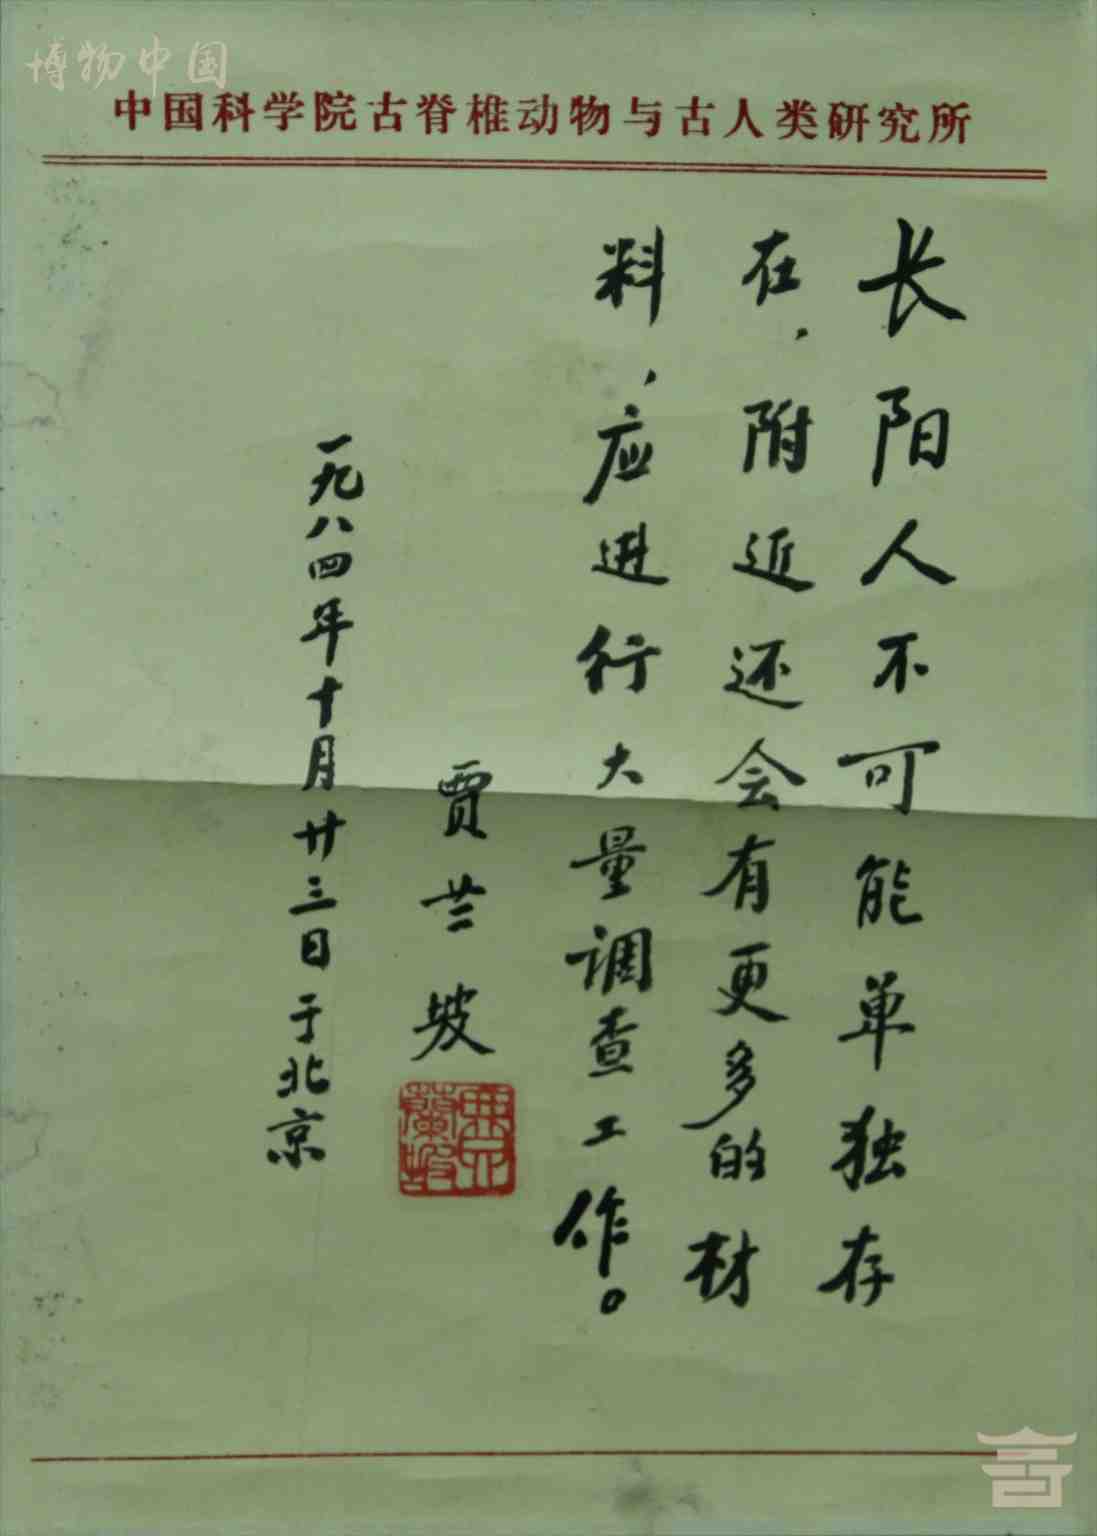 博物中国
中国科学院古脊椎动物与古人类研究所
长阳人不可能单独存
在，附近还会有更多的材
料，应进行大量调查工作。
贾兰坡
一九八四年十月廿三日于北京